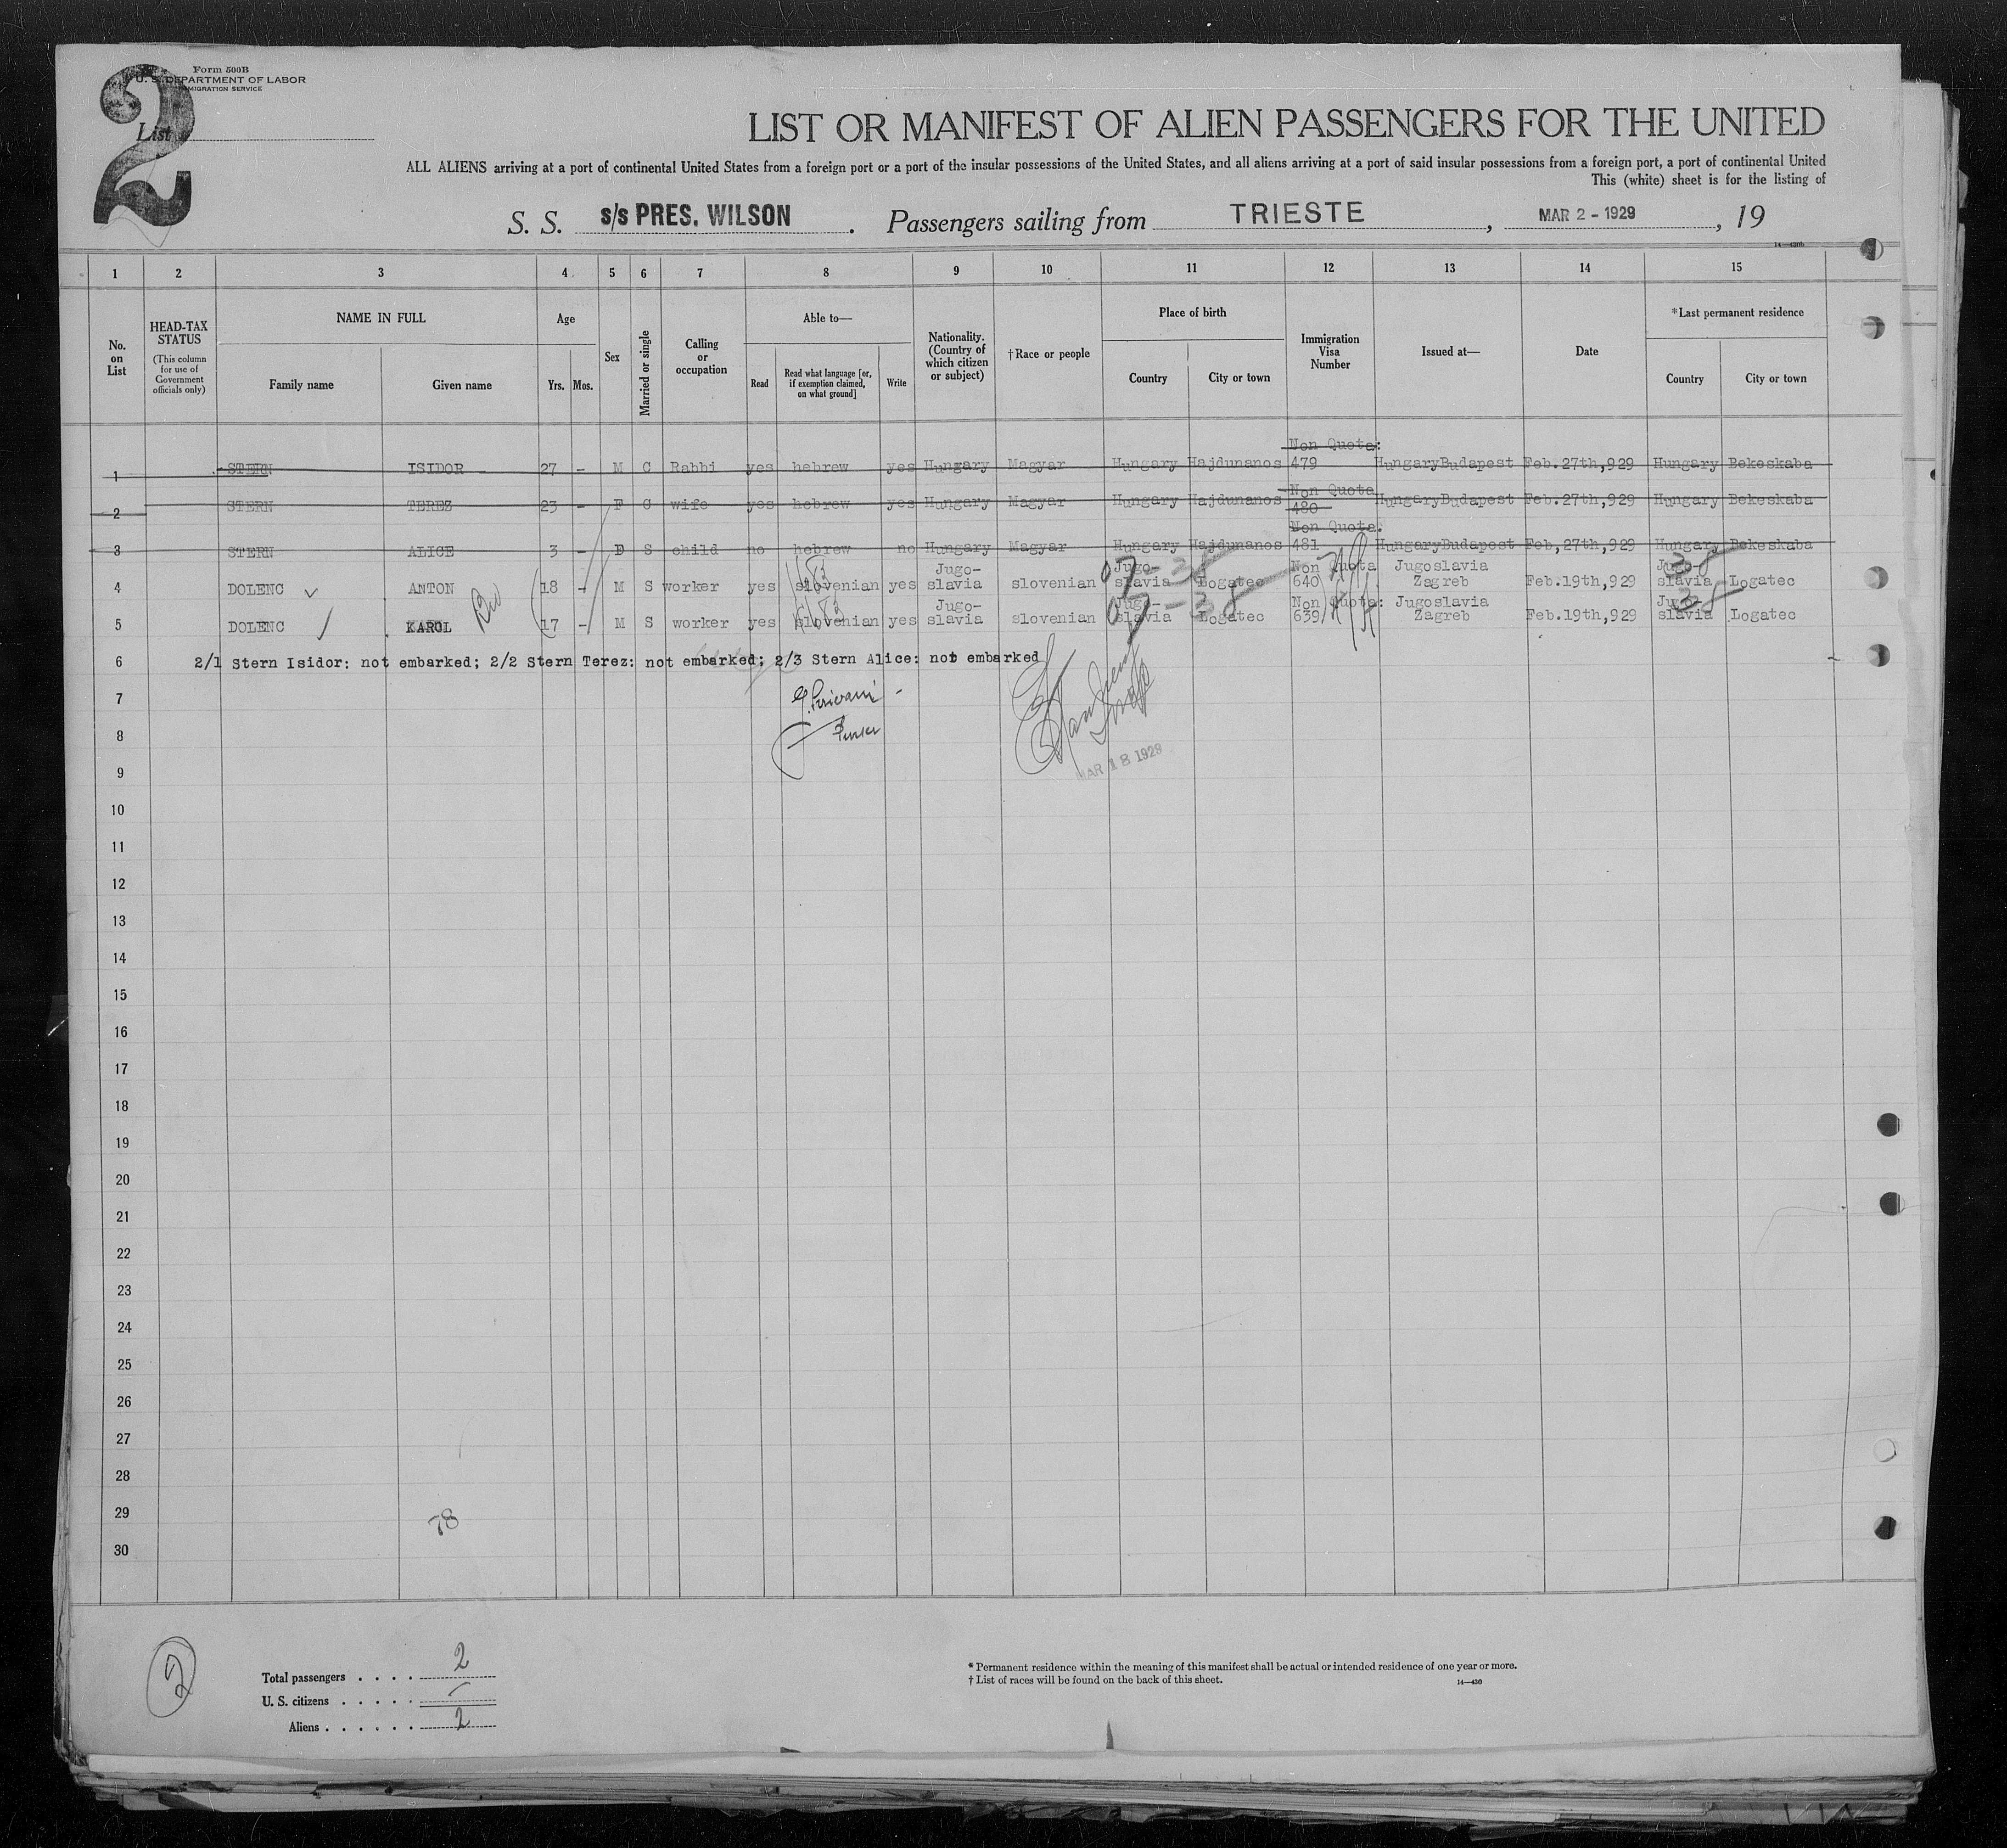 Form 500B
U. S. DEPARTMENT OF LABOR
IMMIGRATION SERVICE
2
List
LIST OR MANIFEST OF ALIEN PASSENGERS FOR THE UNITED
ALL ALIENS arriving at a port of continental United States from a foreign port or a port of the insular possessions of the United States, and all aliens arriving at a port of said insular possessions from a foreign port, a port of continental United
This (white) sheet is for the listing of
S. S. s/s PRES. WILSON . Passengers sailing from TRIESTE , MAR 2 - 1929 , 19
1 2 3 4 5 6 7 8 9 10 11 12 13 14 15
No. on List
HEAD-TAX STATUS (This column for use of Government officials only)
NAME IN FULL
Family name Given name
Age
Yrs. Mos.
Sex
Married or single
Calling or occupation
Able to—
Read Read what language [or, if exemption claimed, on what ground] Write
Nationality. (Country of which citizen or subject)
†Race or people
Place of birth
Country City or town
Immigration Visa Number
Issued at—
Date
*Last permanent residence
Country City or town
Non Quota:
1 STERN ISIDOR 27 - M C Rabbi yes hebrew yes Hungary Magyar Hungary Hajdunanos 479 HungaryBudapest Feb.27th,929 Hungary Bekeskaba
Non Quota
2 STERN TEREZ 23 - F C wife yes hebrew yes Hungary Magyar Hungary Hajdunanos 480 HungaryBudapest Feb.27th,929 Hungary Bekeskaba
Non Quota:
3 STERN ALICE 3 - F S child no hebrew no Hungary Magyar Hungary Hajdunanos 481 HungaryBudapest Feb,27th,929 Hungary Bekeskaba
Jugo- Jugo- Non Quota Jugoslavia Jugo-
4 DOLENC ANTON 18 - M S worker yes slovenian yes slavia slovenian slavia Logatec 640 Zagreb Feb.19th,929 slavia Logatec
Jugo- Jugo- Non Quota: Jugoslavia Jugo-
5 DOLENC KAROL 17 - M S worker yes slovenian yes slavia slovenian slavia Logatec 639 Zagreb Feb.19th,929 slavia Logatec
6 2/1 Stern Isidor: not embarked; 2/2 Stern Terez: not embarked; 2/3 Stern Alice: not embarked
7
8 Purser
9 MAR 18 1929
10
11
12
13
14
15
16
17
18
19
20
21
22
23
24
25
26
27
28
29 78
30
2
Total passengers . . . . 2
U. S. citizens . . . . . -
Aliens . . . . . . 2
* Permanent residence within the meaning of this manifest shall be actual or intended residence of one year or more.
† List of races will be found on the back of this sheet.
14—430